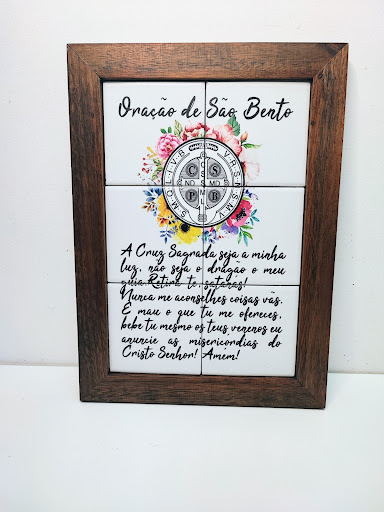 Oração de São Bento
V R S N S M V
S M Q L I V B
C S
S
N D S M D
M
P B
A Cruz Sagrada seja a minha
luz, não seja o dragão o meu
guia. Retira te, satanás!
Nunca me aconselhes coisas vãs.
É mau o que tu me ofereces,
bebe tu mesmo os teus venenos eu
anuncie as misericordias do
Cristo Senhor! Amem!